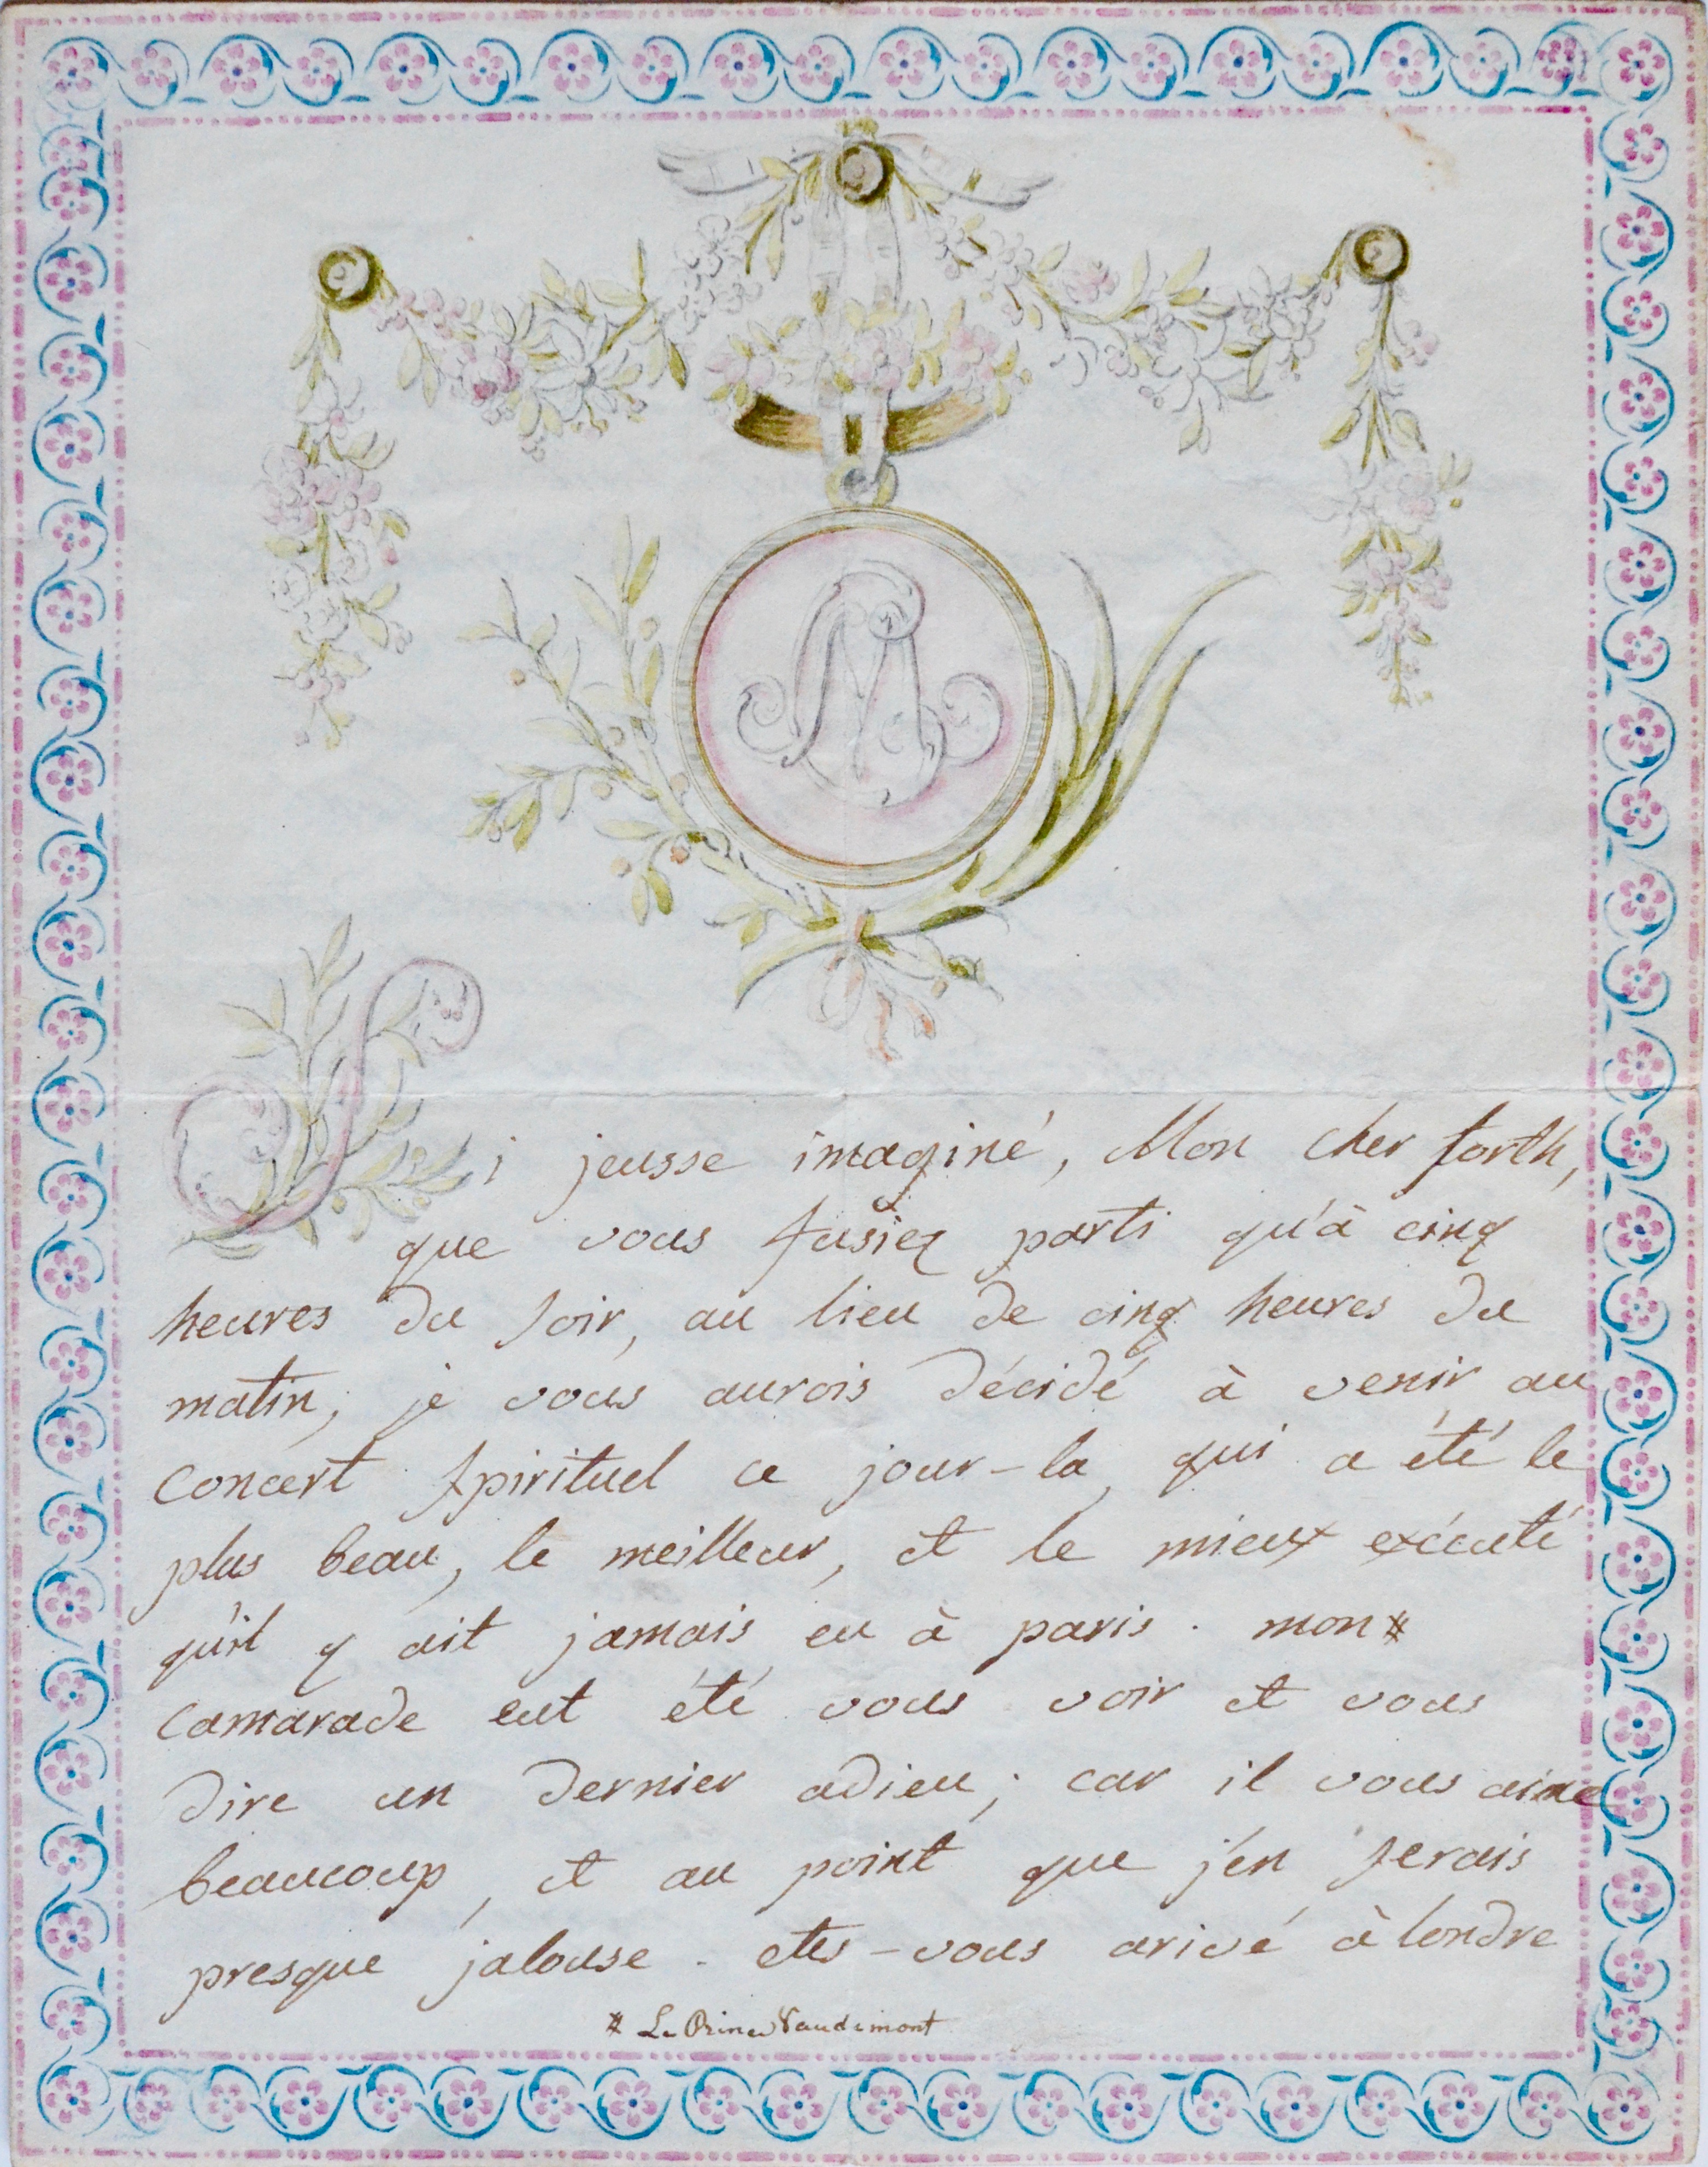 Si jeusse imaginé, Mon cher forth,
que vous fusiez parti qu'à cinq
heures du soir, au lieu de cinq heures du
matin, je vous aurois décidé à venir au
concert spirituel ce jour-la, qui a été le
plus beau, le meilleur, et le mieux exécuté
qu'il y ait jamais eu à paris. mon #
camarade eut été vous voir et vous
dire un dernier adieu; car il vous aime
beaucoup, et au point que j'en serais
presque jalouse. etes-vous arivé à londre
# Le Prince Vaudemont